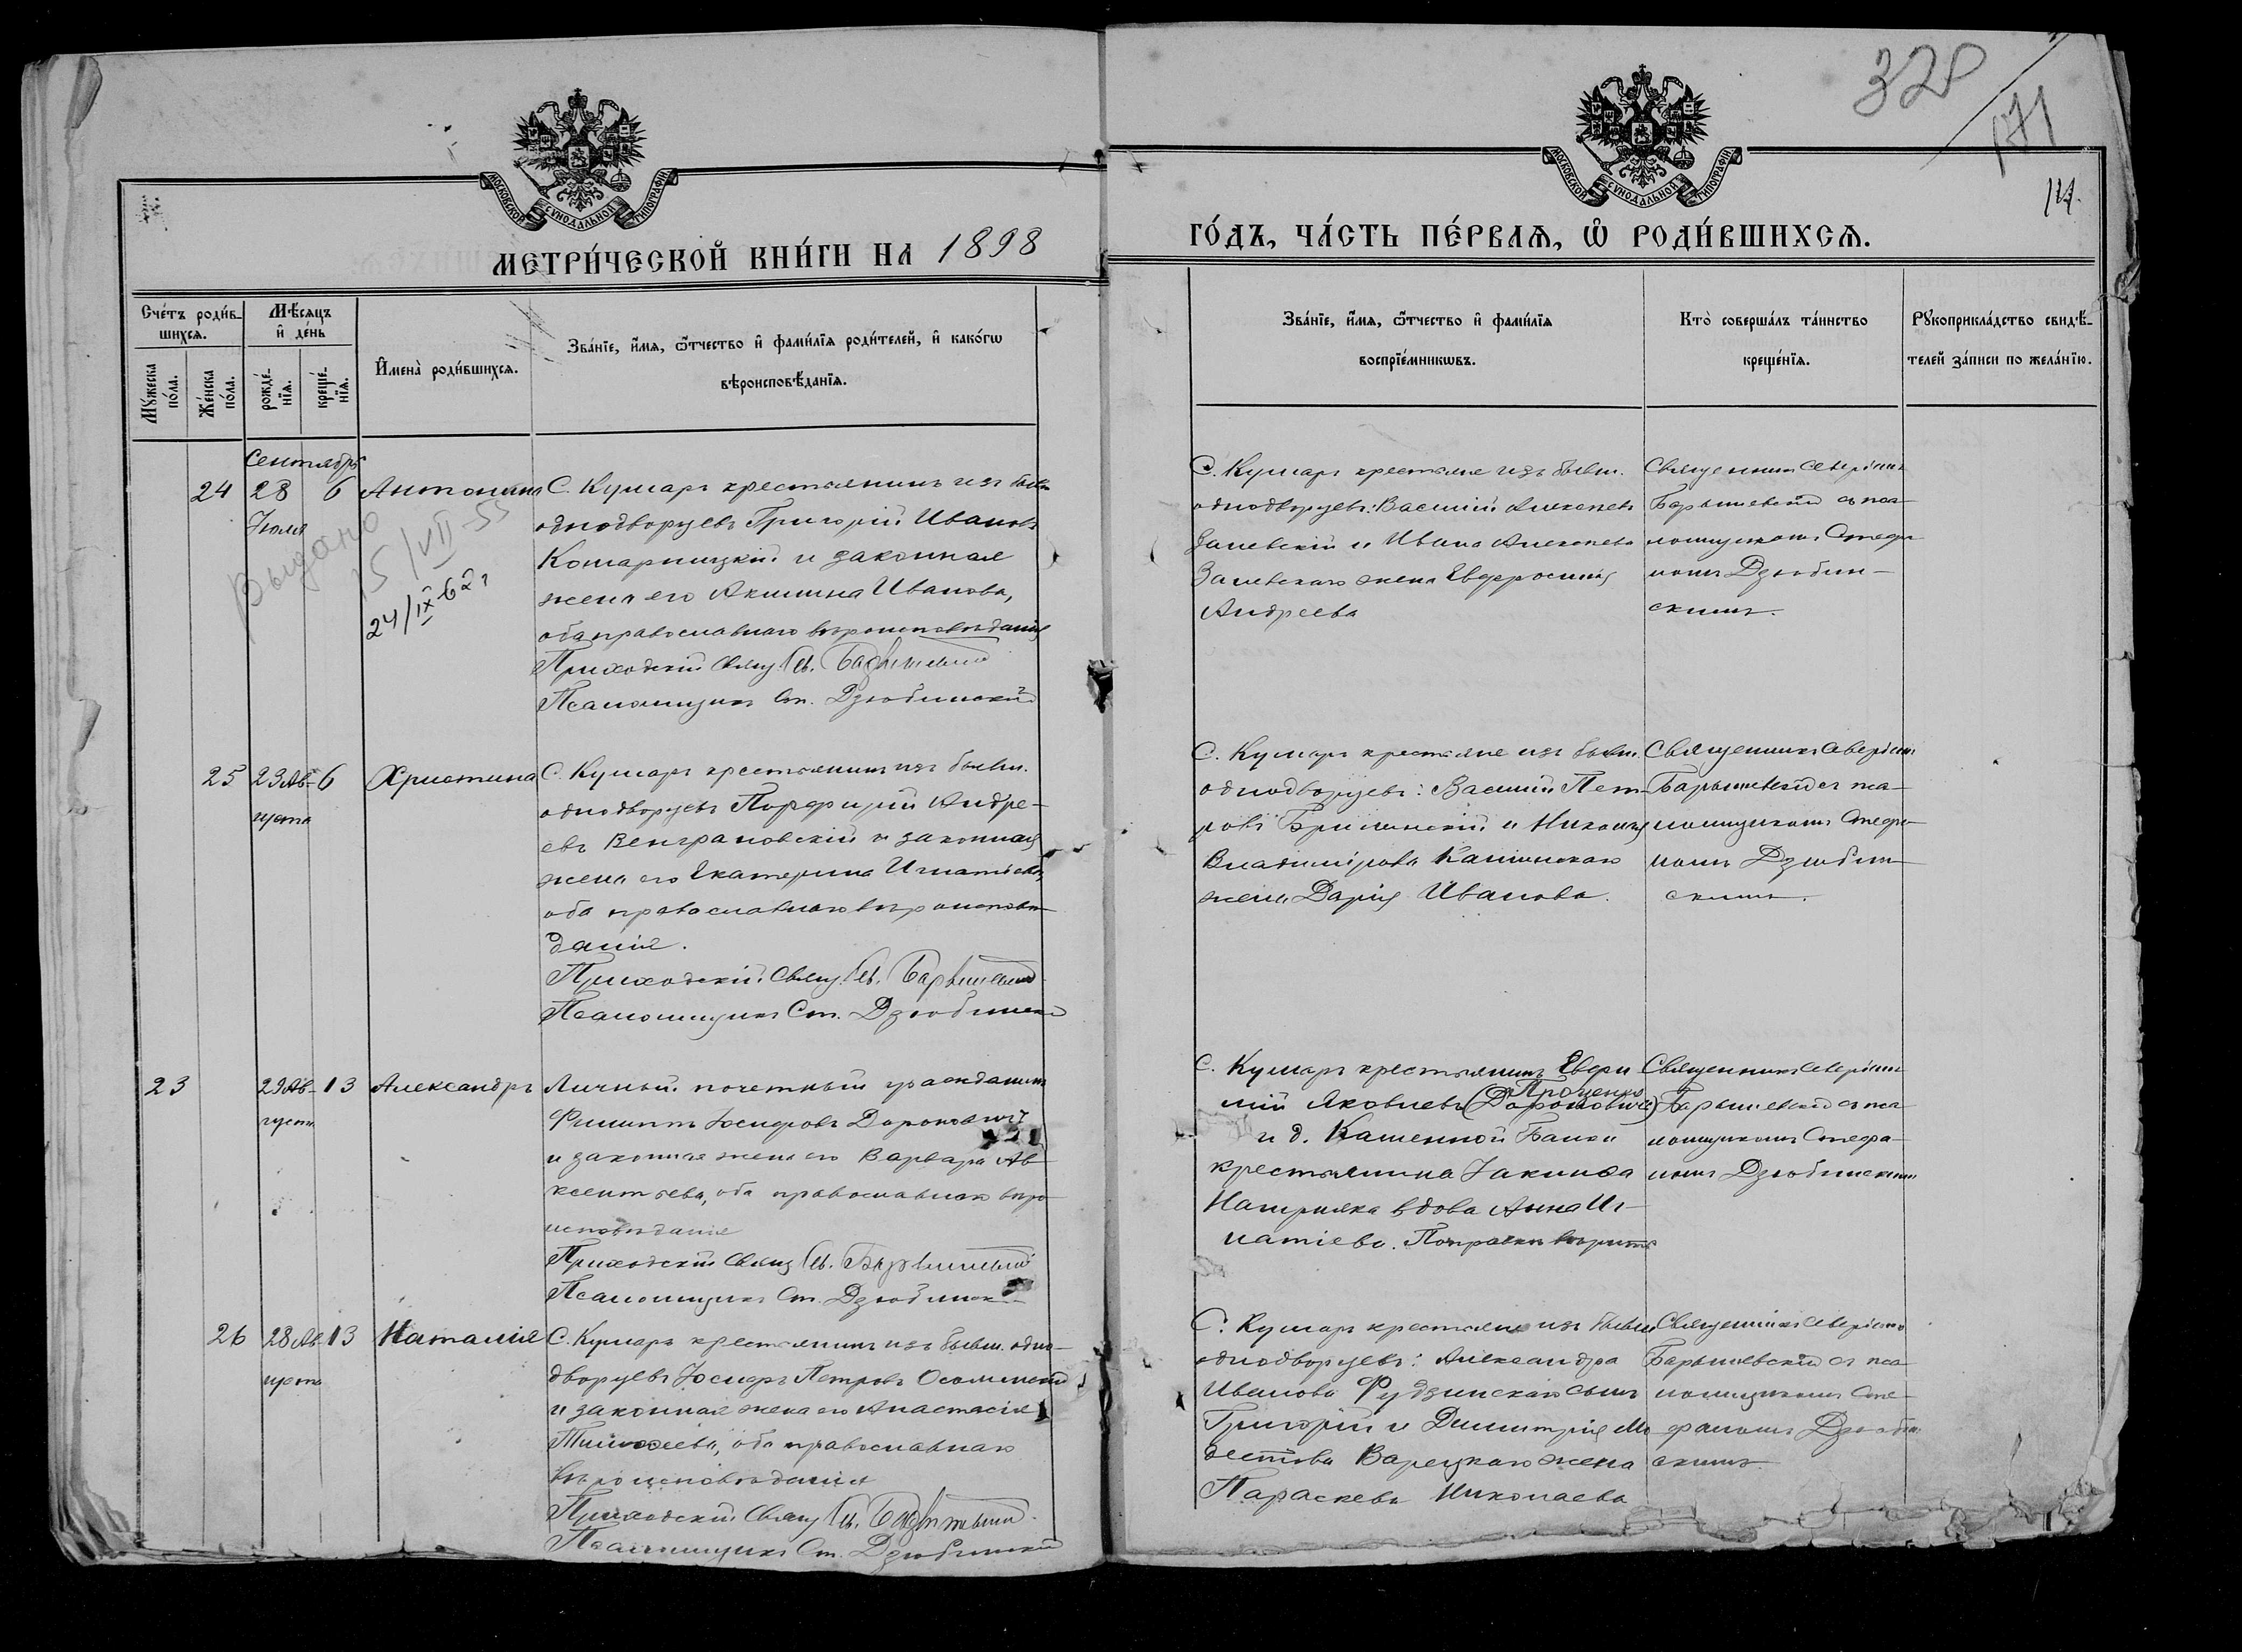 320
171
14
МОСКОВСКОЙ СѴНОДАЛЬНОЙ ТИПОГРАФІИ
МОСКОВСКОЙ СѴНОДАЛЬНОЙ ТИПОГРАФІИ
МЕТРИ́ЧЕСКОЙ КНИ́ГИ НА 1898
ГО́ДЪ, ЧА́СТЬ ПЕ́РВАѦ, Ѡ҆ РОДИ́ВШИХСѦ.
Сче́тъ роди́в-
шихсѧ.
Мꙋ́жеска
по́ла.
Же́нска
по́ла.
Мѣ́сѧцъ
и҆ де́нь
рожде́-
нїѧ.
креще́-
нїѧ.
И҆мена̀ роди́вшихсѧ.
Зва́нїе, и҆́мѧ, ѻ҆́тчество и҆ фами́лїѧ роди́телей, и҆ како́гѡ
вѣроисповѣ́данїѧ.
Зва́нїе, и҆́мѧ, ѻ҆́тчество и҆ фами́лїѧ
воспрїе́мникѡвъ.
Кто̀ соверша́лъ та́инство
креще́нїѧ.
Рꙋкоприкла́дство свидѣ́-
телей за́писи по жела́нїю.
Сентябрь
24 28 6 Антонина
Іюля
Выдано
15/VII-55
24/IX-62 г
С. Кумаръ крестьянинъ изъ бывш.
однодворцевъ Григорій Ивановъ
Комарницкій и законная
жена его Акилина Иванова,
оба православнаго вѣроисповѣданія
Приходскій Свящ. Св. Барышевскій
Псаломщикъ Ст. Дзюбинскій
С. Кумаръ крестьяне изъ бывш.
однодворцевъ: Василій Алексеевъ
Залевскій и Ивана Алексеева
Залевскаго жена Евфросинія
Андреева
Священникъ Северіанъ
Барышевскій съ пса-
ломщикомъ Стефа-
номъ Дзюбин-
скимъ.
25 23 Ав- 6 Христина
густа
С. Кумаръ крестьянинъ изъ бывш.
однодворцевъ Порфирій Андре-
евъ Венграновскій и законная
жена его Екатерина Игнатіева,
оба православнаго вѣроисповѣ-
данія.
Приходскій Свящ. Св. Барышевскій
Псаломщикъ Ст. Дзюбинскій
С. Кумаръ крестьяне изъ бывш.
однодворцевъ: Василій Пет-
ровъ Брилинскій и Николая
Владимірова Калинскаго
жена Дарія Иванова.
Священникъ Северіанъ
Барышевскій съ пса-
ломщикомъ Стефа-
номъ Дзюбин-
скимъ.
23 29 Ав- 13 Александръ
густа
Личный почетный гражданинъ
Филиппъ Іосифовъ Дороновичъ
и законная жена его Варвара Ав-
ксентьева, оба православнаго вѣро-
исповѣданія
Приходскій Свящ. Св. Барышевскій
Псаломщикъ Ст. Дзюбинскій
С. Кумаръ крестьянинъ Евфи-
Проценко
мій Яковлевъ (Дороновичъ)
и д. Каменной Балки
крестьянина Іакинфа
вдова Анна Иг-
натіева. Поправки вѣрить
Священникъ Северіанъ
Барышевскій съ пса-
ломщикомъ Стефа-
номъ Дзюбинскимъ
26 28 Ав- 13 Наталія
густа
С. Кумаръ крестьянинъ изъ бывш. одно-
дворцевъ Іосифъ Петровъ
и законная жена его Анастасія
Тимофеева, оба православнаго
вѣроисповѣданія
Приходскій Свящ. Св. Барышевскій
Псаломщикъ Ст. Дзюбинскій
С. Кумаръ крестьяне изъ бывш.
однодворцевъ: Александра
Иванова Фудзинскаго сынъ
Григорій и Димитрія Мо-
дестова Варецкаго жена
Параскева Николаева
Священникъ Северіанъ
Барышевскій съ пса-
ломщикомъ Сте-
фаномъ Дзюбин-
скимъ.